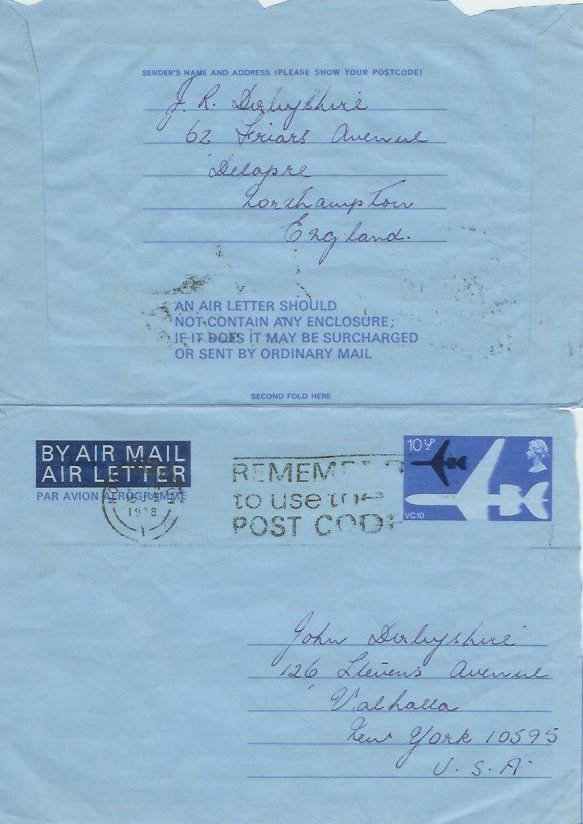 SENDER'S NAME AND ADDRESS (PLEASE SHOW YOUR POSTCODE)
J. R. Derbyshire
62 Friars Avenue
Delapre
Northampton
England.
AN AIR LETTER SHOULD
NOT CONTAIN ANY ENCLOSURE;
IF IT DOES IT MAY BE SURCHARGED
OR SENT BY ORDINARY MAIL
SECOND FOLD HERE
BY AIR MAIL
AIR LETTER
PAR AVION AEROGRAMME
1978
REMEMBER
to use the
POST CODE
10½P
VC10
John Derbyshire
126 Stevens Avenue
Valhalla
New York 10595
U.S.A.